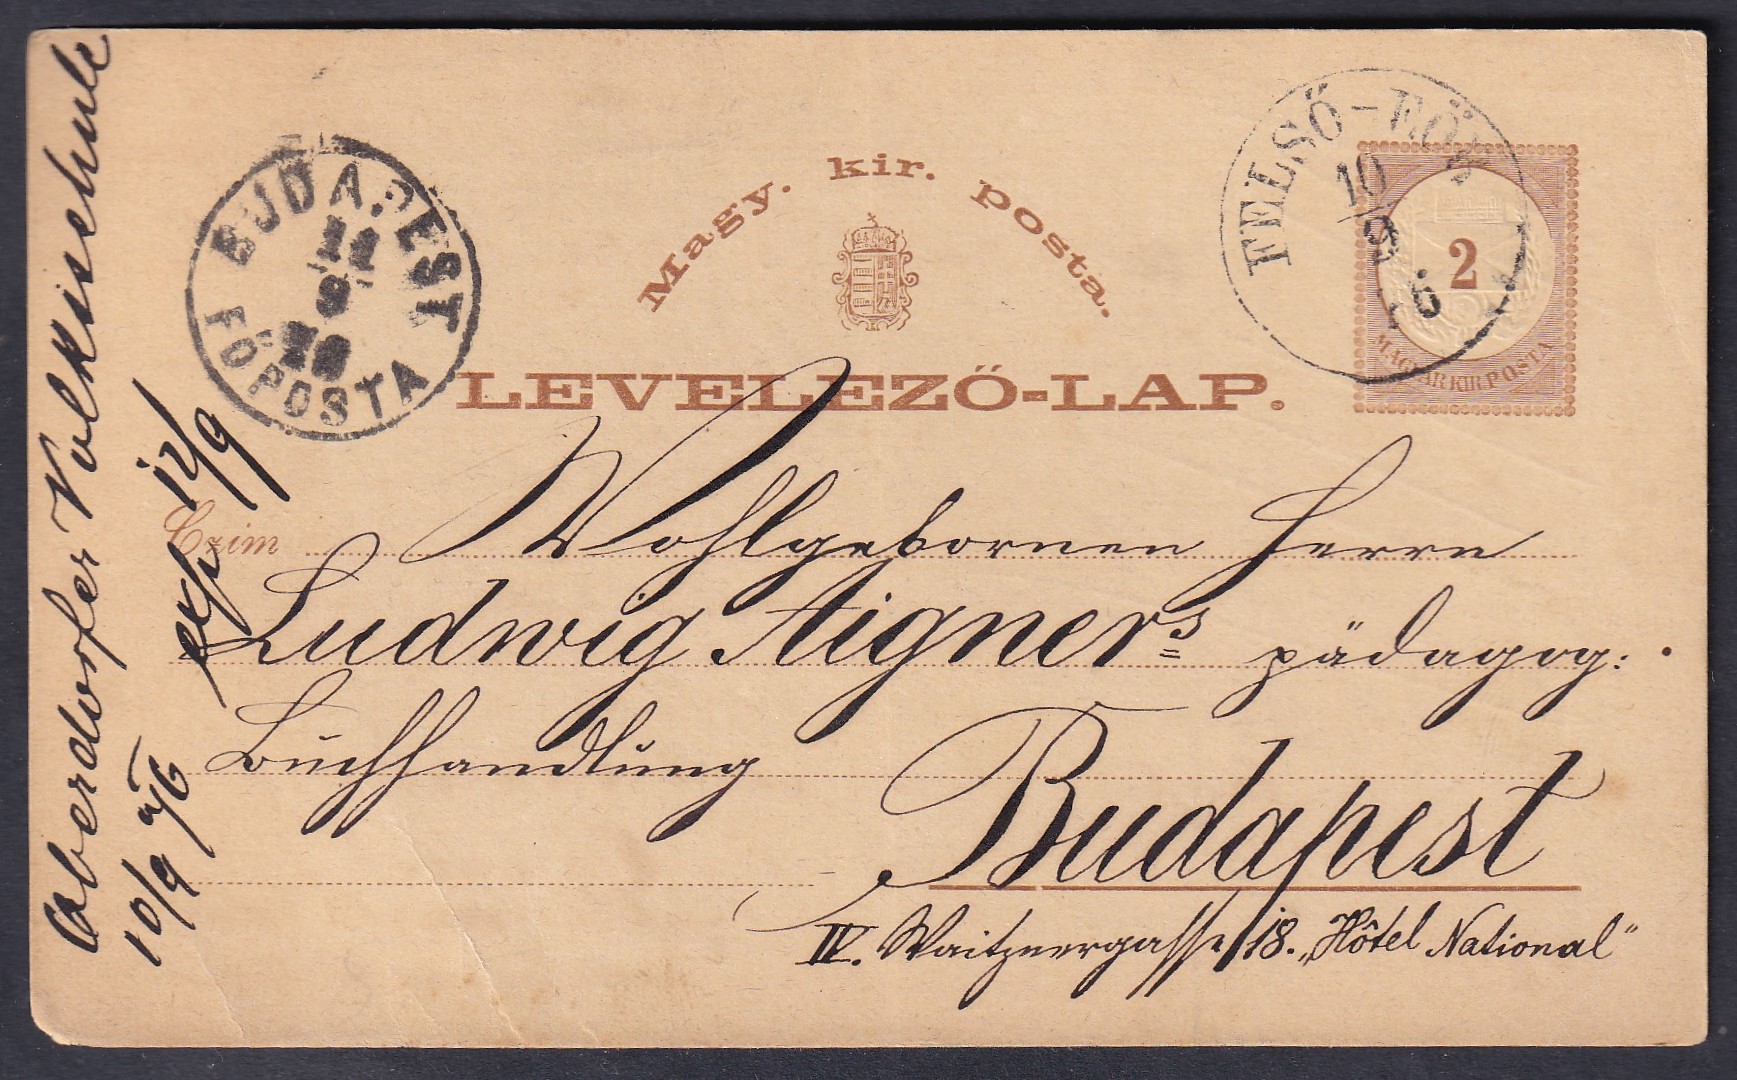 Magy. kir. posta.
LEVELEZŐ-LAP.
BUDAPEST
11
9
FŐPOSTA
FELSŐ-EŐR
10
9
2
MAGYAR KIR POSTA
Czim
Wohlgebornen Herrn
Ludwig Aigners pädagog:
Buchhandlung
Budapest
IV. Waitznergasse 18. „Hôtel National"
Oberdorfer Volksschule
10/9 76
exp 12/9